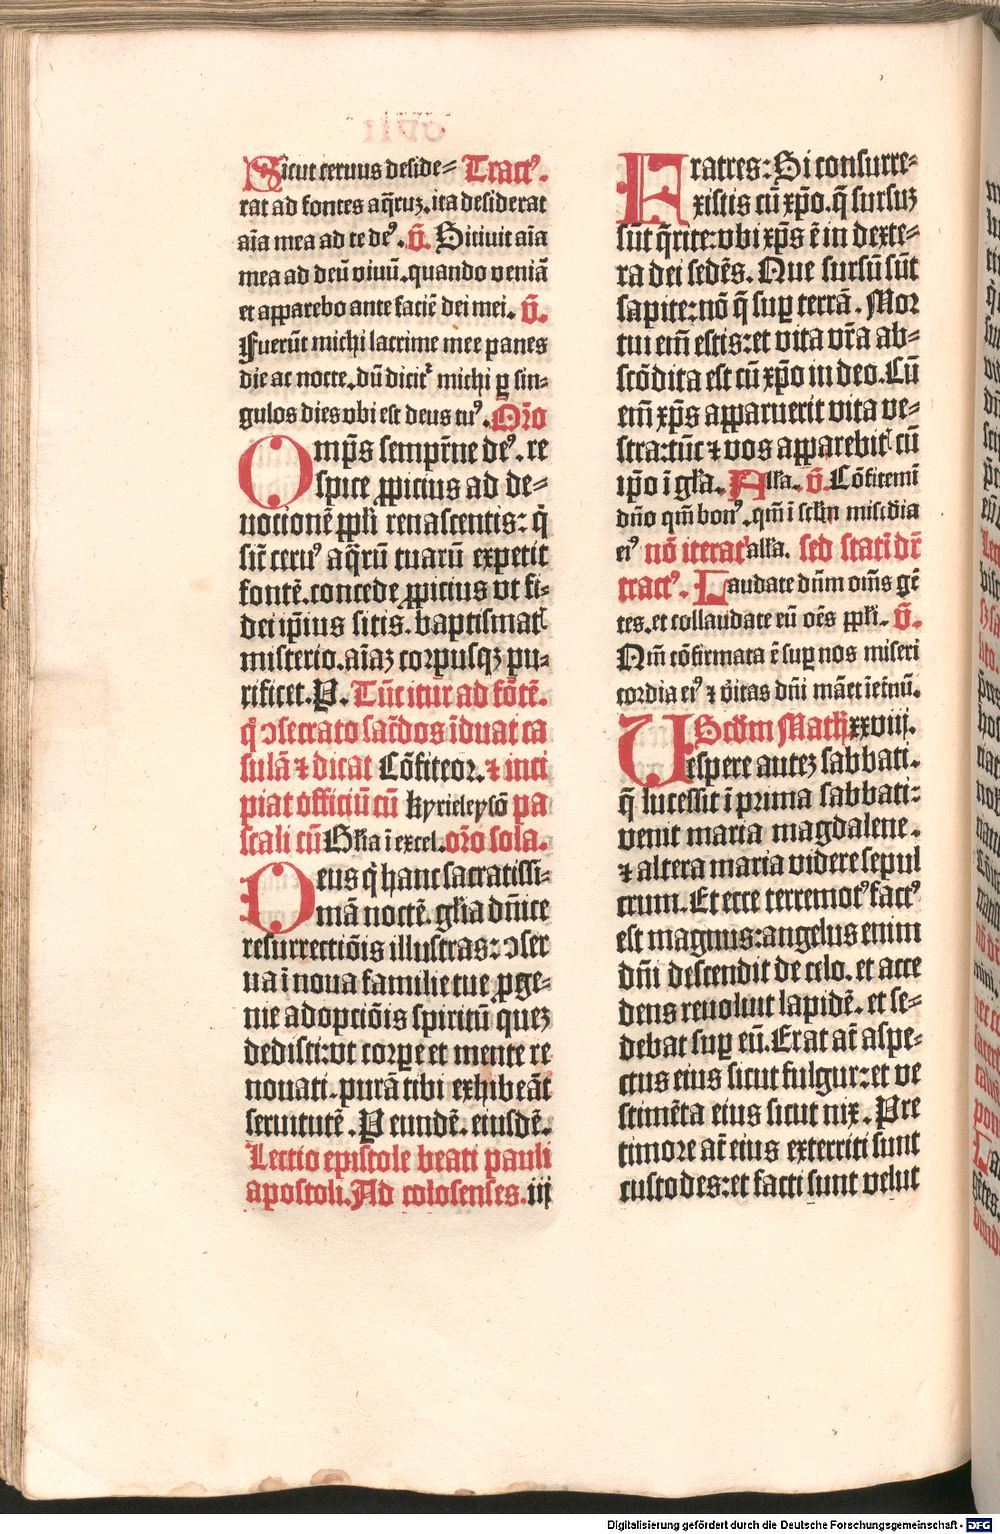 Sicut ceruus deside⸗ Tractꝰ.
rat ad fontes aq̄ruꝫ.ita desiderat
aīa mea ad te deꝰ. v̄. Sitiuit aīa
mea ad deū viuū.quando veniā
et apparebo ante faciē dei mei. v̄.
Fuerūt michi lacrime mee panes
die ac nocte.dū dicitᷣ michi ꝑ sin⸗
gulos dies vbi est deus tuꝰ. Or̄o
Omp̄s semp̄rne deꝰ. re
spice ꝓpicius ad de⸗
uocionē pp̄li renascentis: q̄
sic̄ ceruꝰ aq̄rū tuarū expetit
fontē.concede ꝓpicius vt fi⸗
dei ip̄ius sitis. baptismatꝭ
misterio.aīaꝫ corpusqꝫ pu⸗
rificet.P. Tūc itur̄ ad fōtē.
q̊ ↄsecrato sac̄dos īduat ca
sulā ⁊ dicat Cōfiteor. ⁊ inci
piat officiū cū Kyrieleysō pa
scali cū Gl̄ia ī excel.or̄o sola.
Deus q̇ hanc sacratissi⸗
mā noctē. gl̄ia dn̄ice
resurrectiōis illustras: ↄser
ua ī noua familie tue ꝓge⸗
nie adopciōis spiritū queꝫ
dedisti:vt corpe et mente re
nouati.purā tibi exhibeāt
seruitutē. P eundē. eiusdē.
Lectio epistole beati pauli
apostoli.Ad colosenses.iij
Fratres: Si consurre⸗
xistis cū xp̄o.q̄ sursuꝫ
sūt q̄rite:vbi xp̄s ē in dexte⸗
ra dei sedēs. Que sursū sūt
sapite:nō q̄ suꝑ terrā. Mor
tui em̄ estis:et vita vr̄a ab⸗
scōdita est cū xp̄o in deo.Cū
em̄ xp̄s apparuerit vita ve⸗
stra:tūc ⁊ vos apparebitꝭ cū
ip̄o ī gl̄a. All̄a. v̄. Cōfitemī
dn̄o qm̄ bonꝰ.qm̄ ī scl̄m misc̄dia
eiꝰ nō iterat᷑ all̄a. sed stati᷑ dr̄
tractꝰ. Laudate dn̄m om̄s gē
tes.et collaudate eū oēs pp̄li. v̄.
Qm̄ cōfirmata ē suꝑ nos miseri
cordia eiꝰ ⁊ v̄itas dn̄i māet īet̄nū.
Scd̄m Math̄ xxviij.
Vespere auteꝫ sabbati.
q̄ lucessit ī prima sabbati:
venit maria magdalene.
⁊ altera maria videre sepul
crum. Et ecce terremotꝰ factꝰ
est magnus:angelus enim
dn̄i descendit de celo. et acce
dens reuoluit lapidē. et se⸗
debat suꝑ eū. Erat at̄ aspe⸗
ctus eius sicut fulgur:et ve
stimēta eius sicut nix. Pre
timore at̄ eius exterriti sunt
custodes:et facti sunt velut
Digitalisierung gefördert durch die Deutsche Forschungsgemeinschaft - DFG